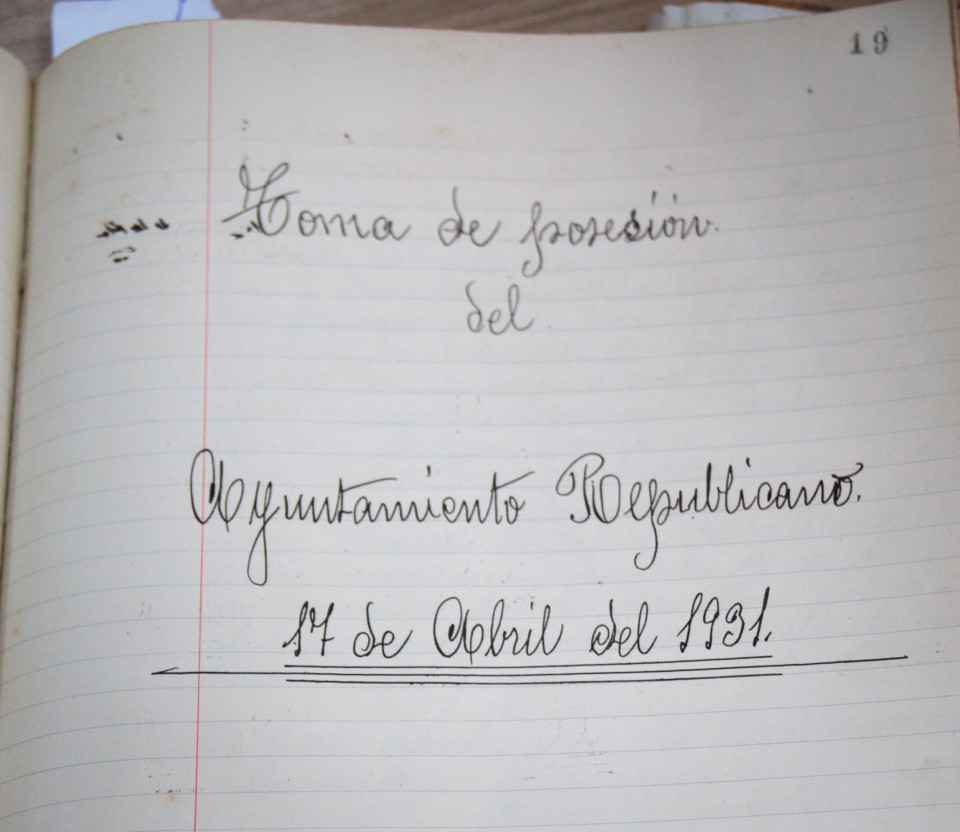 19
Toma de posesión.
del
Ayuntamiento Republicano.
17 de Abril del 1931.